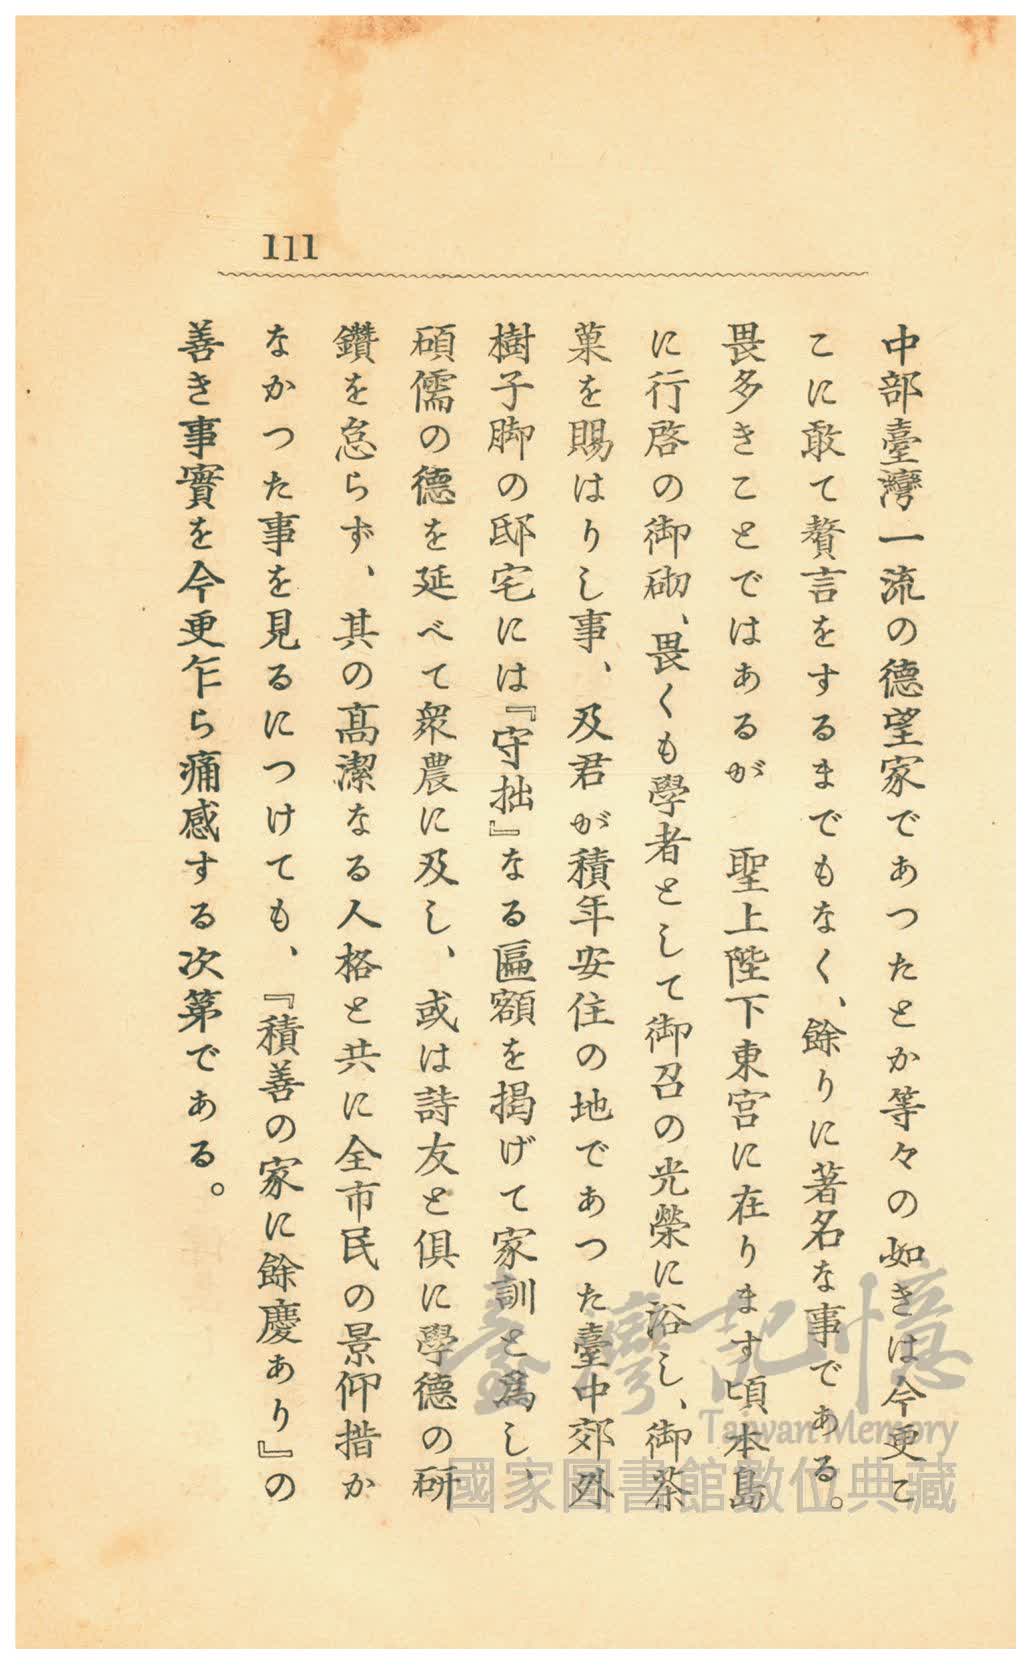 111
中部臺灣一流の德望家であつたとか等々の如きは今更こ
こに敢て贅言をするまでもなく、餘りに著名な事である。
畏多きことではあるが　聖上陛下東宮に在ります頃本島
に行啓の御砌、畏くも學者として御召の光榮に浴し、御茶
菓を賜はりし事、及君が積年安住の地であつた臺中郊外
樹子脚の邸宅には『守拙』なる匾額を揭げて家訓と爲し、
碩儒の德を延べて衆農に及し、或は詩友と俱に學德の研
鑽を怠らず、其の高潔なる人格と共に全市民の景仰措か
なかつた事を見るにつけても、『積善の家に餘慶あり』の
善き事實を今更乍ら痛感する次第である。
臺灣記憶
Taiwan Memory
國家圖書館數位典藏